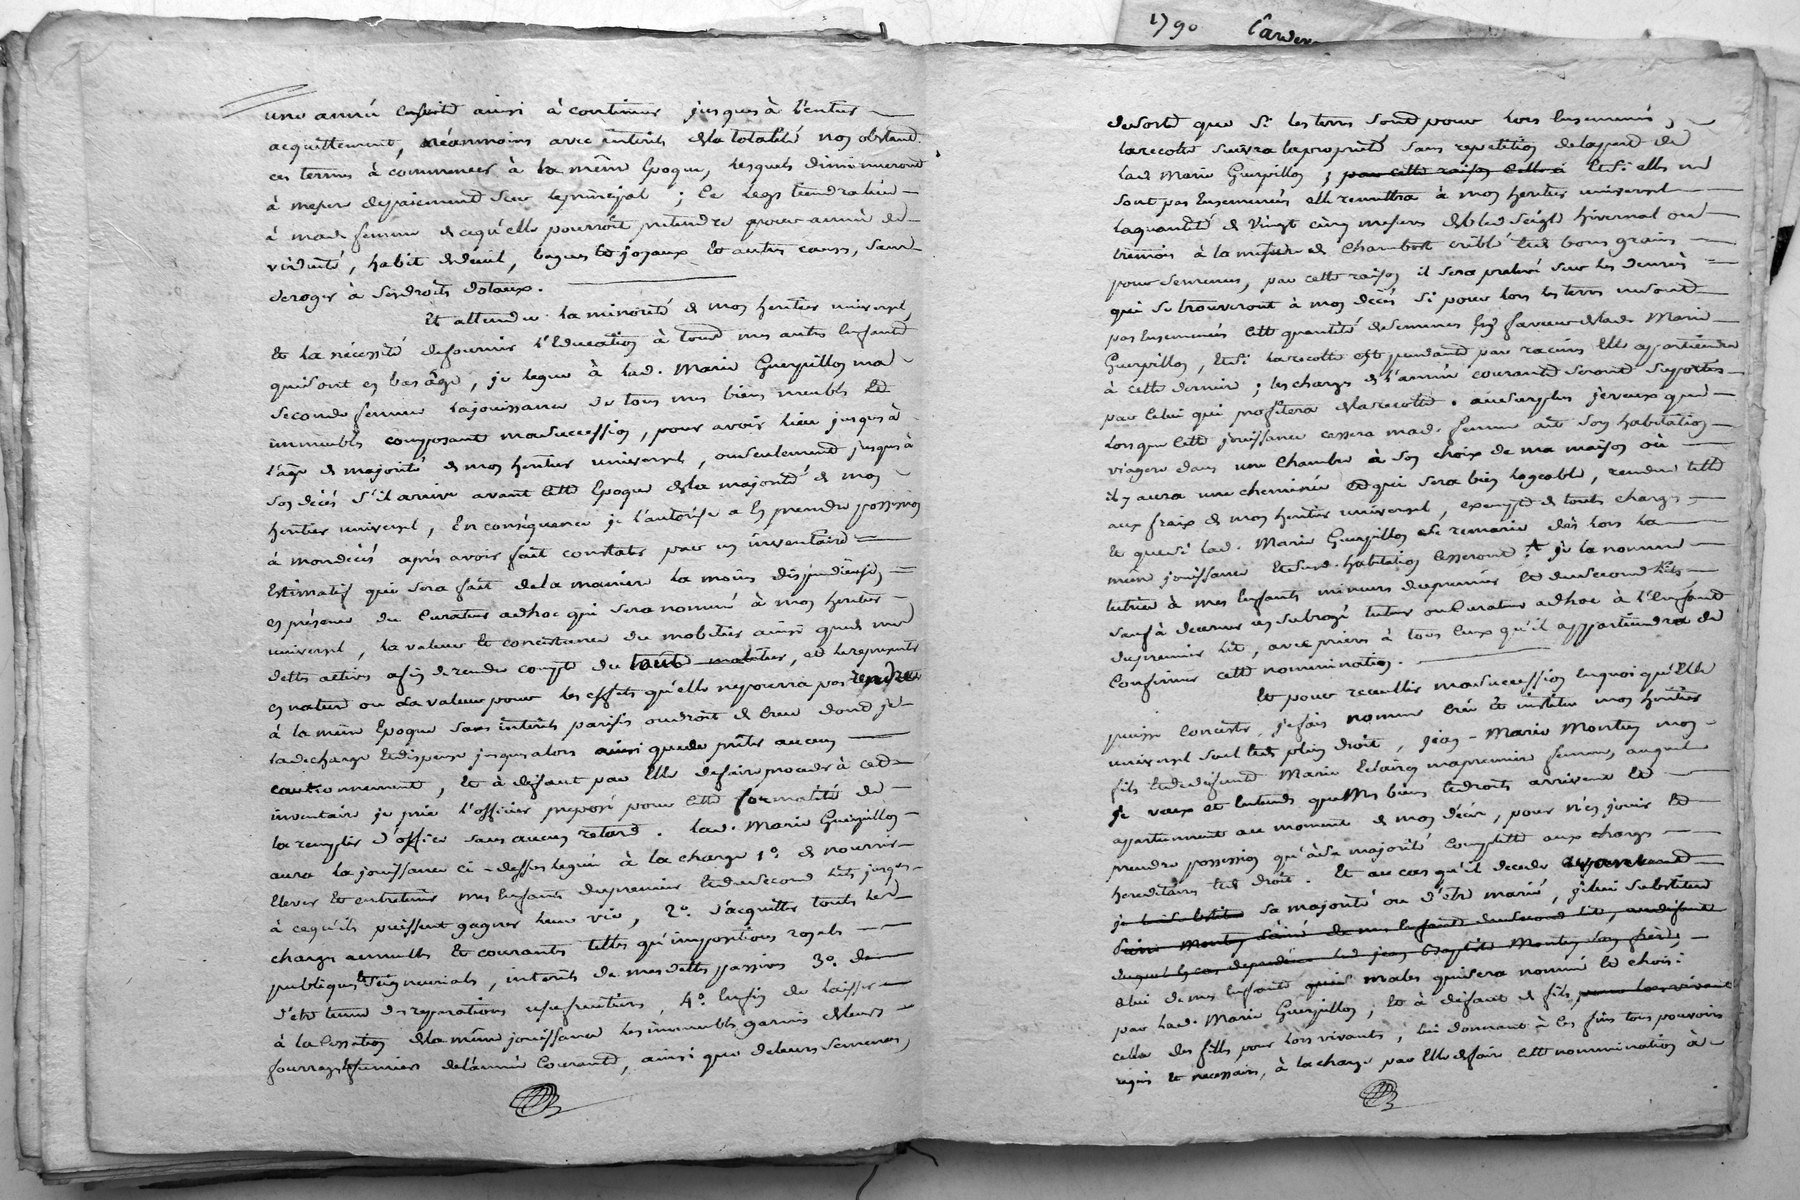 1790
une année ensuite ainsi à continuer jusques à l'entier
acquittement, néanmoins avec interets de la totalité non obstant
ces termes à commencer à la même Epoque, lesquels diminueront
à mesure du paiement sur le principal ; Ce Legs tiendra lieu
à made femme de ce qu'elle pourroit pretendre pour année de
viduité, habit de deuil, bagues et joyaux et autres causes, sans
deroger à ses droits dotaux.
Et attendu la minorité de mon heritier universel,
et la nécessité de fournir l'Education à tous mes autres Enfants
qui sont en bas âge, je legue à lad. Marie Guerpillon ma
seconde femme la jouissance de tous mes biens meubles et
immeubles composant ma succession, pour avoir lieu jusques à
l'age de majorité de mon heritier universel, ou seulement jusques à
son décès s'il arrive avant cette Epoque de la majorité de mon
heritier universel, En conséquence je l'autorise a En prendre possession
à mon décès après avoir fait constater par un inventaire
Estimatif qui sera fait de la maniere la moins dispendieuse,
en présence du Curateur adhoc qui sera nommé à mon heritier
universel, la valeur et consistance du mobilier ainsi que de mes
dettes actives afin de rendre compte du tout, et le representer
en nature ou la valeur pour les effets qu'elle ne pourra pas rendre
à la même Epoque sans interets parisis ou droit de Creue dont je
la decharge et dispense jusques alors ainsi que de prêter aucun
cautionnement, Et à défaut par Elle de faire proceder à cet
inventaire je prie l'officier preposé pour cette formalité de
la remplir d'office sans aucun retard. Lad. Marie Guerpillon
aura la jouissance ci-dessus leguée à la charge 1o. de nourrir
Elever Et entretenir mes Enfants du premier et du second Lits jusques
à ce qu'ils puissent gagner leur vie, 2o. d'acquitter toutes les
charges annuelles et courantes telles qu'impositions royales
publiques et Seigneuriales, interêts de mes dettes passives 3o. de
d'etre tenue des reparations usufruitieres, 4o. Enfin de laisser
à la Cessation de la même jouissance les immeubles garnis de leurs
fourrages et fumiers de l'année Courante, ainsi que de leurs semences,
de sorte que si les terres sont pour lors Ensemencées,
la recolte suivra la propriété sans repetition de la part de
lad. Marie Guerpillon ; par cette raison Et si elles ne
sont pas Ensemencées elle remettra à mon heritier universel
la quantité de Vingt cinq mesures de bled seigle hivernal ou
tremois à la mesure de Chambost criblé et de bons grains
pour semences, par cette raison il sera prelevé sur les denrées
qui se trouveront à mon décès si pour lors les terres ne sont
pas Ensemencées cette quantité de semences En faveur de lad. Marie
Guerpillon, Et si la recolte est pendante par racines Elle appartiendra
à cette derniere ; les charges de l'année courante seront suportées
par Celui qui profitera de la recolte. au surplus je veux que
lorsque Cette jouissance cessera mad. femme ait son habitation
viagere dans une Chambre à son choix de ma maison où
il y aura une cheminée et qui sera bien logeable, rendue telle
aux fraix de mon heritier universel, exempte de toutes charges,
Et que si lad. Marie Guerpillon se remarie dès lors la
même jouissance Et susd. habitation Cesseront ; je la nomme
tutrice à mes Enfants mineurs du premier et du second Lits
sauf à decerner un subrogé tuteur ou Curateur adhoc à l'Enfant
du premier Lit, avec priere à tous Ceux qu'il appartiendra de
Confirmer cette nommination.
Et pour recueillir ma succession En quoi qu'Elle
puisse Consister, je fais nomme Crée Et institue mon heritier
universel seul Et de plein droit, Jean-Marie Montey mon
fils Et de defunte Marie Eclairey ma premiere femme, auquel
Je veux et Entends que Mes biens et droits arrivent Et
appartiennent au moment de mon décès, pour n'en jouir Et
prendre possession qu'à sa majorité Complette aux charges
hereditaires Et de droit. Et au cas qu'il decede avant
je lui substitue sa majorité ou d'être marié, je lui substitue
Montey l'ainé de mes Enfants du second Lit, au defaut
duquel En cas de predécés led. jean Baptiste Montey son frère,
celui de mes Enfants males qui sera nommé et choisi
par lad. Marie Guerpillon, Et à défaut de fils
celle des filles pour lors vivantes, lui donnant à ces fins tous pouvoirs
requis et necessaires, à la charge par Elle de faire cette nommination à